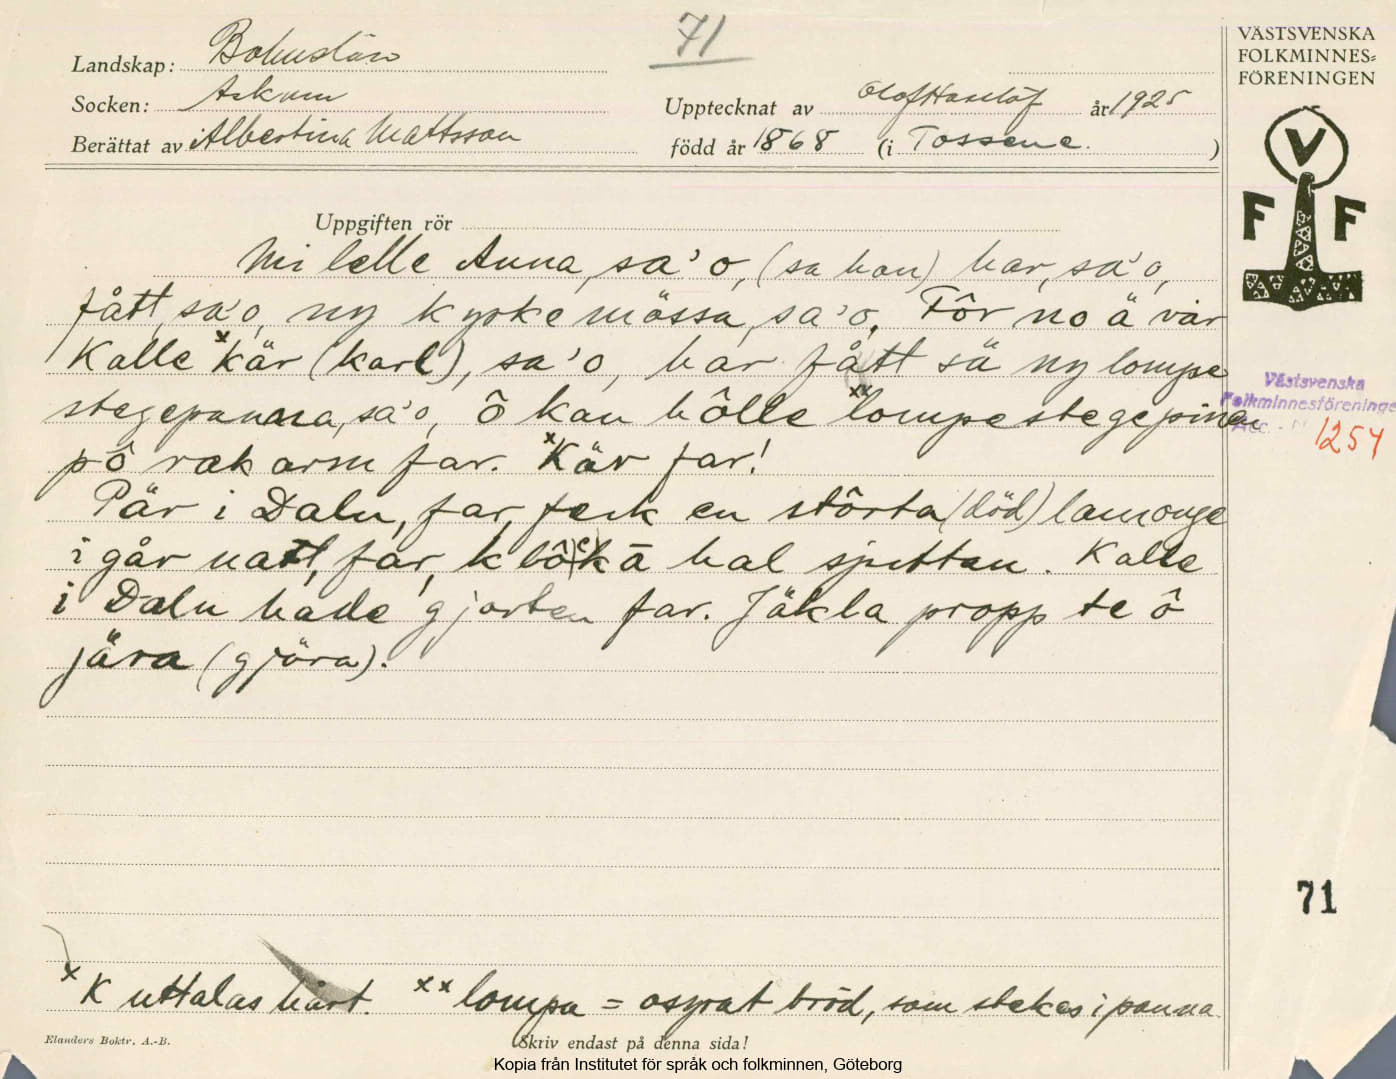 71
VÄSTSVENSKA
FOLKMINNES=
FÖRENINGEN
Landskap: Bohuslän
Socken: Askum
Upptecknat av Olof Hasslöf år 1925
Berättat av Albertina Mattsson
född år 1868 (i Tossene.)
V
F F
Uppgiften rör
Mi lelle Anna, sa'o, (sa hon) har, sa'o,
fått, sa'o, ny kyrkemössa, sa'o. För no ä vår
Kalle ˣkär (karl), sa'o, har fått sä ny lompe
stegepanna, sa'o, ô kan hôlle ˣˣlompestegepinan
pô rak arm far. ˣKär far!
Pär i Daln, far, feck en stôrta (död) lamonge
i går natt, far, k lô(c)k ā hal sjuttan. Kalle
i Daln hade gjorten far. Jäkla propp te ô
jära (gjöra).
Västsvenska
Folkminnesföreningen
Acc. - N 1254
71
ˣK uttalas hårt. ˣˣlompa = osyrat bröd, som stekes i panna.
Elanders Boktr. A.-B.
Skriv endast på denna sida!
Kopia från Institutet för språk och folkminnen, Göteborg